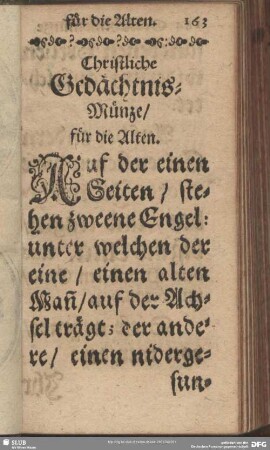 für die Alten. 163
Christliche
Gedächtnis-
Müntze/
für die Alten.
Auf der einen
Seiten / ste-
hen zweene Engel:
unter welchen der
eine / einen alten
Mañ/auf der Ach-
sel trägt: der ande-
re/ einen niderge-
sun-
SLUB
DFG